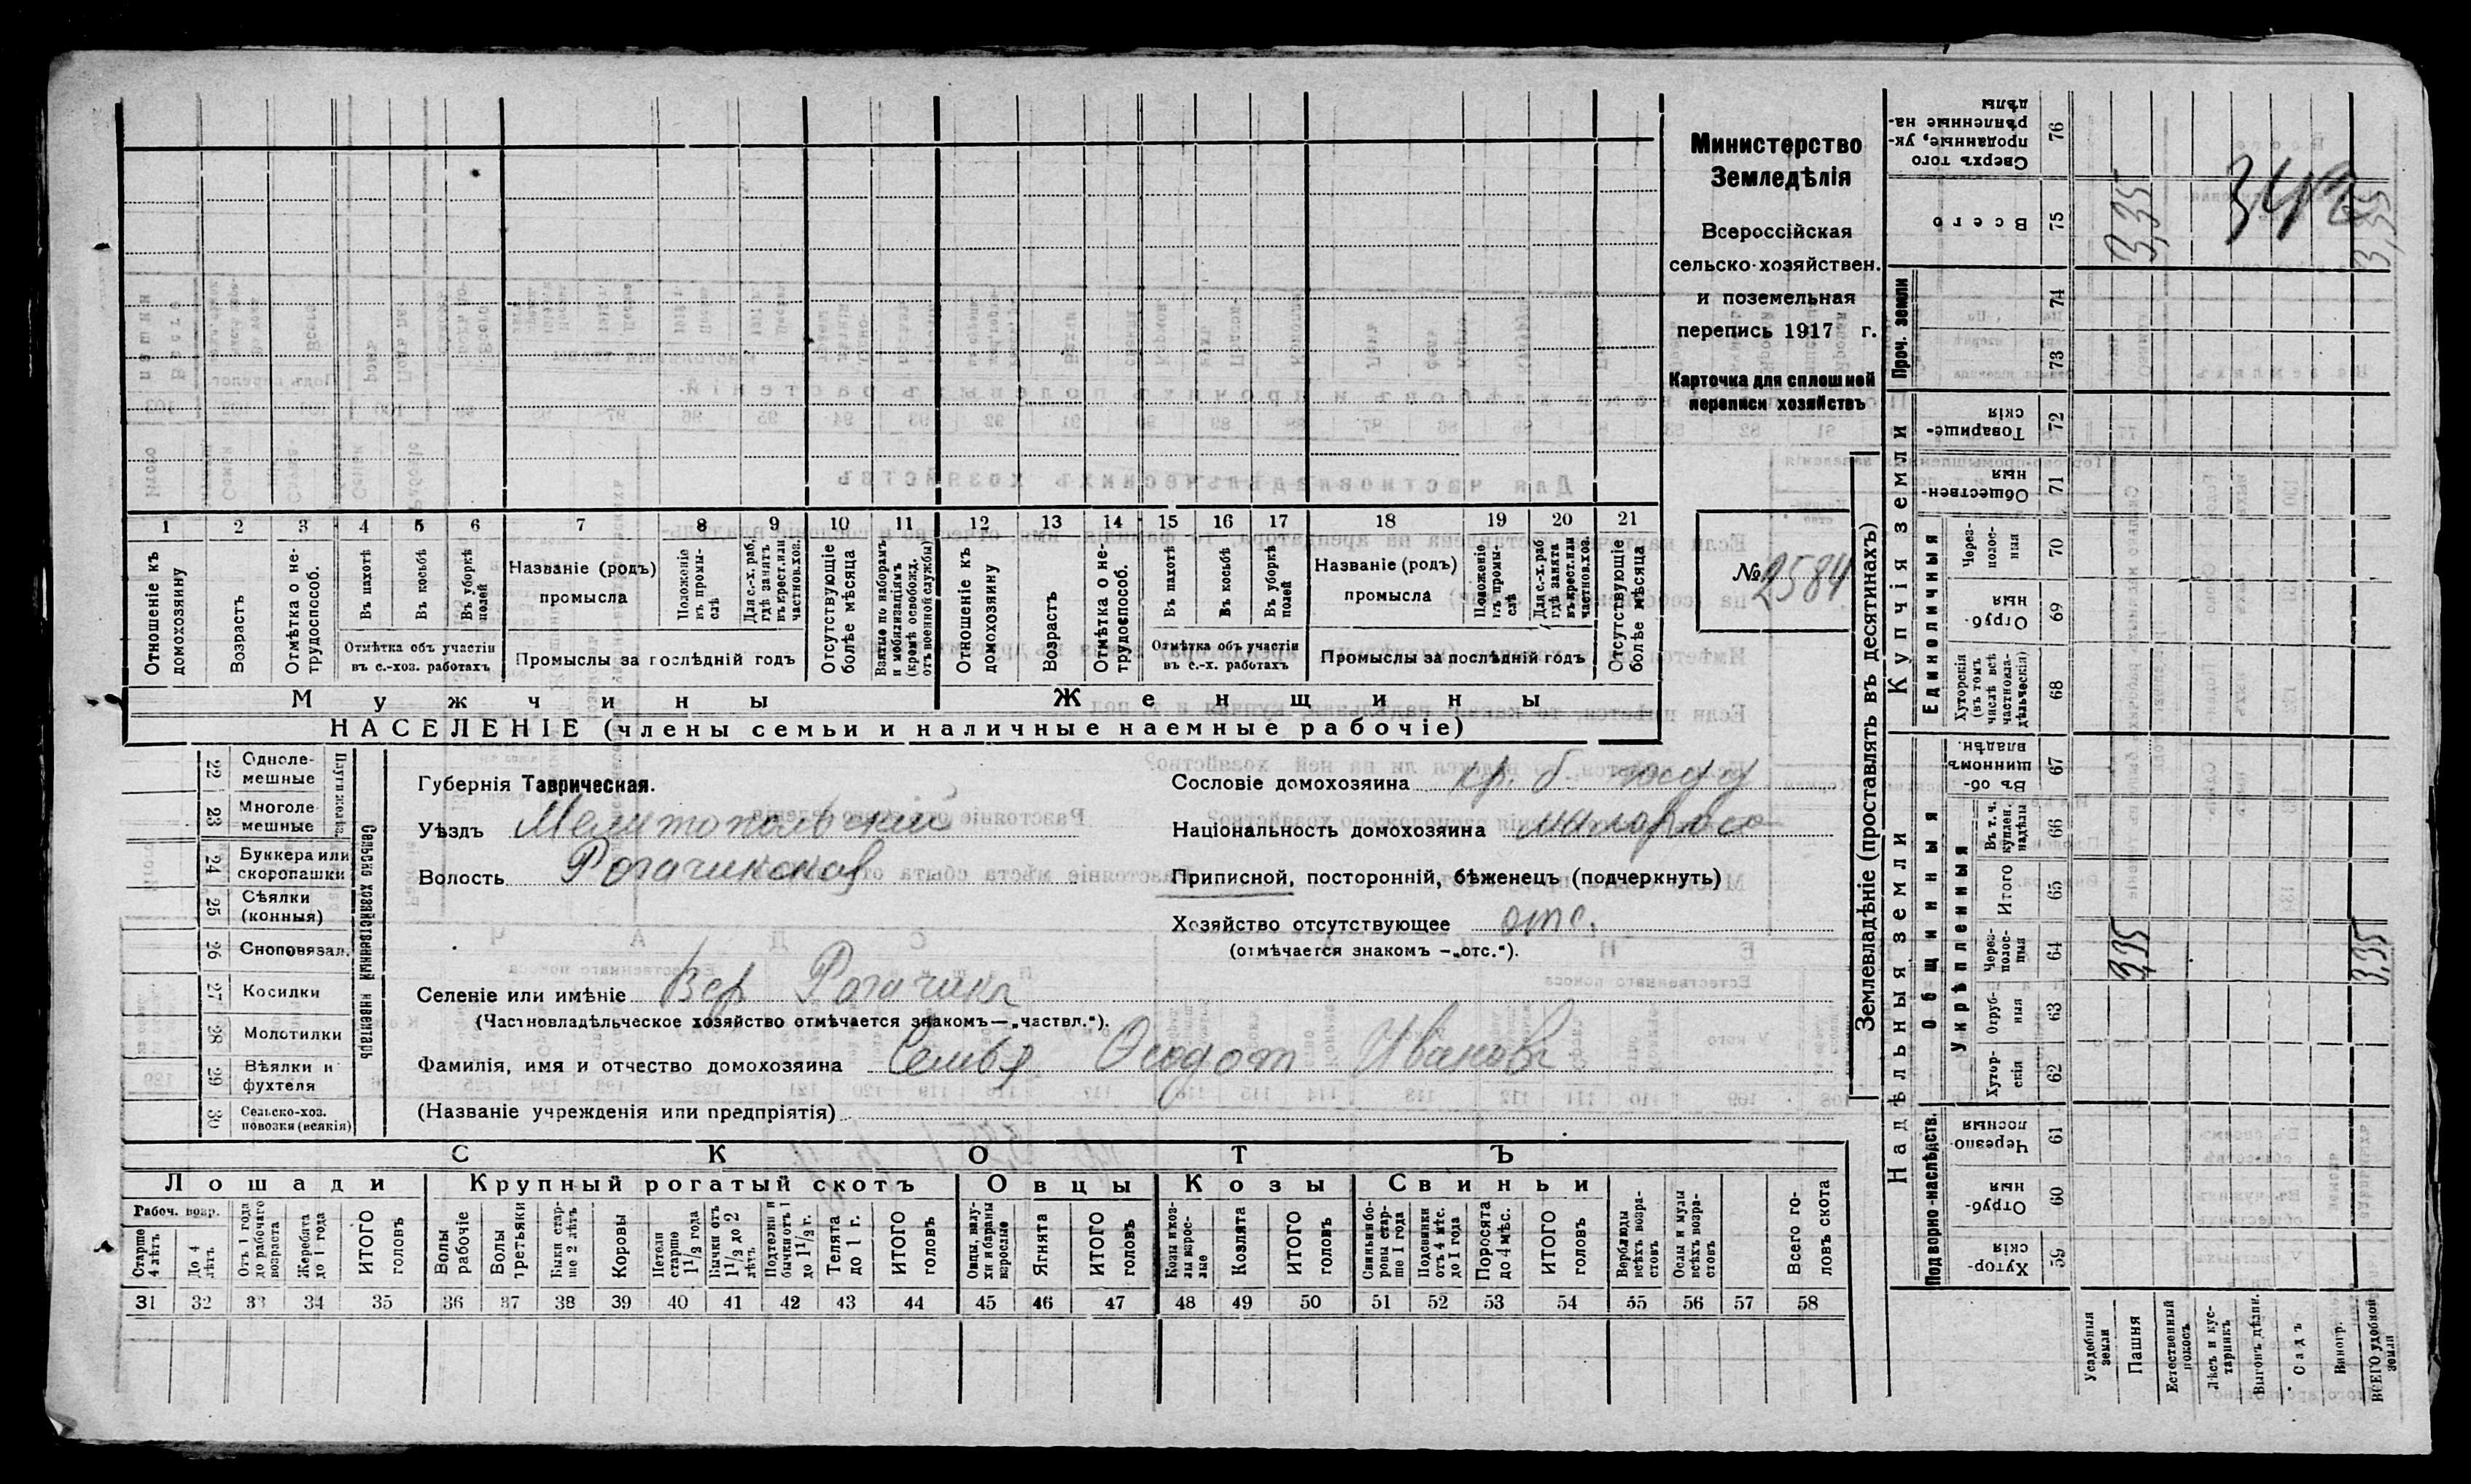 Министерство
Земледѣлія
Всероссійская
сельско-хозяйствен.
и поземельная
перепись 1917 г.
Карточка для сплошной
переписи хозяйствъ
№ 2584
1 2 3 4 5 6 7 8 9 10 11 12 13 14 15 16 17 18 19 20 21
Отношеніе къ домохозяину
Возрастъ
Отмѣтка о не-трудоспособ.
Въ пахотѣ
Въ косьбѣ
Въ уборкѣ полей
Отмѣтка объ участіи въ с.-хоз. работахъ
Названіе (родъ) промысла
Положеніе въ промы-слѣ
Для с.-х. раб. гдѣ занятъ въ крест. или частнов. хоз.
Промыслы за послѣдній годъ
Отсутствующіе болѣе мѣсяца
Взятые по наборамъ и мобилизаціямъ (кромѣ освобожд. отъ военной службы)
Отношеніе къ домохозяину
Возрастъ
Отмѣтка о не-трудоспособ.
Въ пахотѣ
Въ косьбѣ
Въ уборкѣ полей
Отмѣтка объ участіи въ с.-х. работахъ
Названіе (родъ) промысла
Положеніе въ промы-слѣ
Для с.-х. раб. гдѣ занята въ крест. или частнов. хоз.
Промыслы за послѣдній годъ
Отсутствующіе болѣе мѣсяца
Мужчины Женщины
НАСЕЛЕНІЕ (члены семьи и наличные наемные рабочіе)
Сельско хозяйственный инвентарь
22 Одноле-мешные
23 Многоле-мешные
24 Буккера или скоропашки
25 Сѣялки (конныя)
26 Сноповязал.
27 Косилки
28 Молотилки
29 Вѣялки и фухтеля
30 Сельско-хоз. повозки (всякія)
Губернія Таврическая.
Уѣздъ Мелитопольскій
Волость Рогачикская
Сословіе домохозяина кр. б.
Національность домохозяина малоросс
Приписной, посторонній, бѣженецъ (подчеркнуть)
Хозяйство отсутствующее отс.
(отмѣчается знакомъ —„отс.“).
Селеніе или имѣніе Вер Рогачикъ
(Частновладѣльческое хозяйство отмѣчается знакомъ—„частвл.“).
Фамилія, имя и отчество домохозяина Семья Ѳеодот Иванов
(Названіе учрежденія или предпріятія)
СКОТЪ
Лошади Крупный рогатый скотъ Овцы Козы Свиньи
Рабоч. возр.
Старше 4 лѣтъ
До 4 лѣтъ
Отъ 1 года до рабочаго возраста
Жеребята до 1 года
ИТОГО головъ
Волы рабочіе
Волы третьяки
Быки стар-ше 2 лѣтъ
Коровы
Нетели старше 1 1/2 года
Бычки отъ 1 1/2 до 2 лѣтъ
Подтелки и бычки отъ 1 до 1 1/2 г.
Телята до 1 г.
ИТОГО головъ
Овцы, валу-хи и бараны взрослые
Ягнята
ИТОГО головъ
Козы и коз-лы взрос-лые
Козлята
ИТОГО головъ
Свиньи и бо-ровы стар-ше 1 года
Подсвинки отъ 4 мѣс. до 1 года
Поросята до 4 мѣс.
ИТОГО головъ
Верблюды всѣхъ возра-стовъ
Ослы и мулы всѣхъ возра-стовъ
Всего го-ловъ скота
31 32 33 34 35 36 37 38 39 40 41 42 43 44 45 46 47 48 49 50 51 52 53 54 55 56 57 58
Землевладѣніе (проставлять въ десятинахъ)
Надѣльныя земли
Купчія земли
Проч. земли
Подворно-наслѣдств.
Общинныя
Укрѣпленныя
Единоличныя
Сверхъ того проданные, ук-рѣпленные на-дѣлы 76
Всего 75 3,35 3,35
74
73
Товарище-скія 72
Обществен-ныя 71
Через-полос-ныя 70
Отруб-ныя 69
Хуторскія (въ томъ числѣ всѣ частновла-дѣльческія) 68
Въ об-щинномъ владѣн. 67
Въ т. ч. куплен. надѣлы 66
Итого 65
Через-полос-ныя 64 3,35 3,35
Отруб-ныя 63
Хутор-скія 62
Черезпо-лосныя 61
Отруб-ныя 60
Хутор-скія 59
Усадебныя земли
Пашня
Естественный покосъ
Лѣсъ и кус-тарникъ
Выгонъ дѣлян.
Садъ
Виногр.
ВСЕГО удобной земли